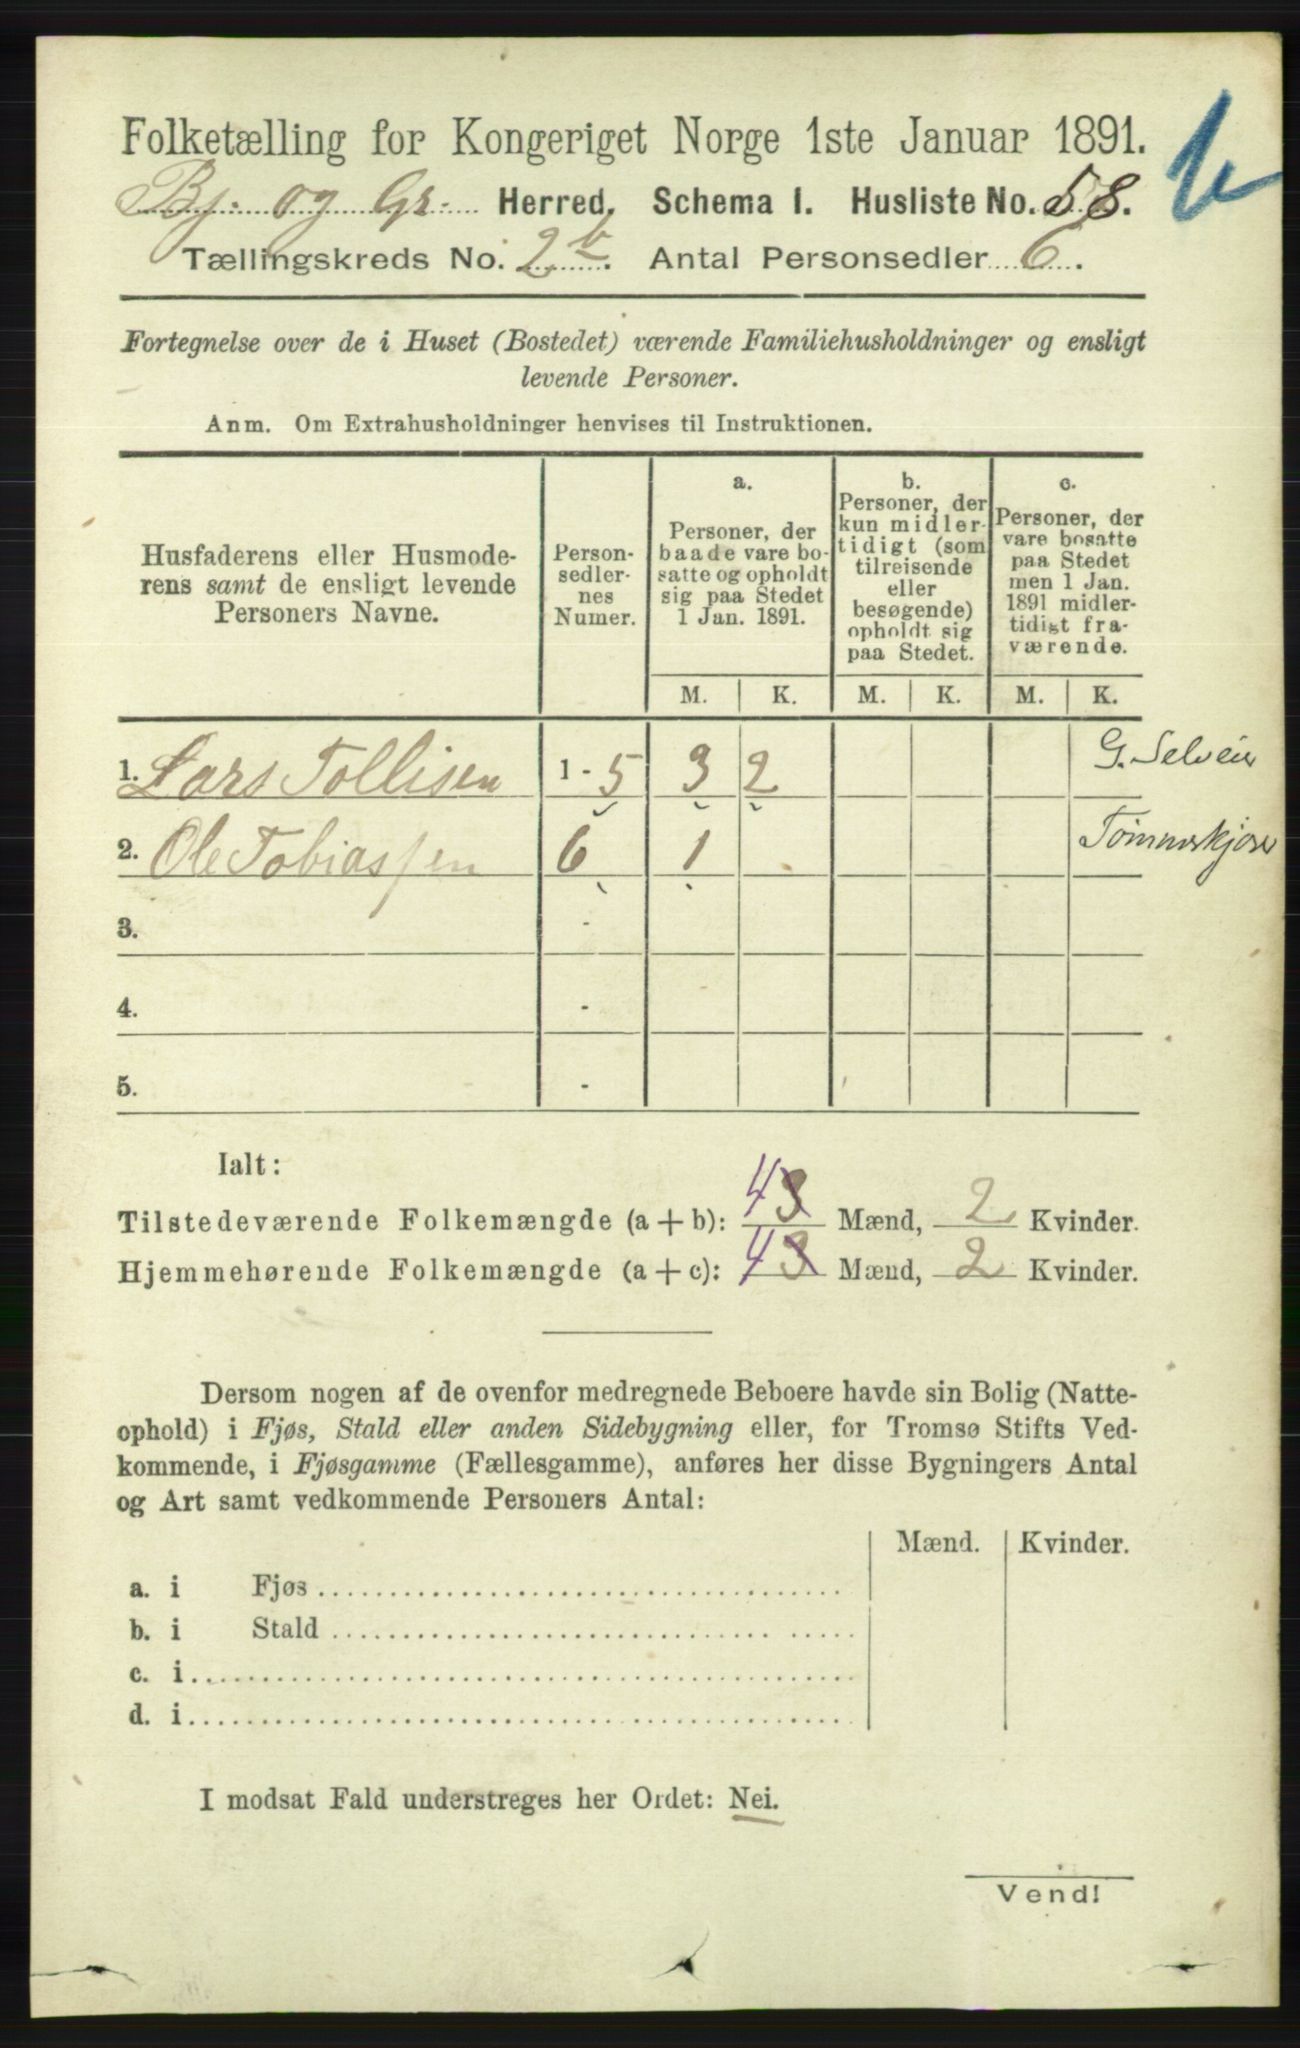 Folketælling for Kongeriget Norge 1ste Januar 1891.
Bj. og Gr. Herred. Schema I. Husliste No. 58.
Tællingskreds No. 2b. Antal Personsedler 6.
Fortegnelse over de i Huset (Bostedet) værende Familiehusholdninger og ensligt
levende Personer.
Anm. Om Extrahusholdninger henvises til Instruktionen.
Husfaderens eller Husmode-
rens samt de ensligt levende
Personers Navne.
Person-
sedler-
nes
Numer.
a.
Personer, der
baade vare bo-
satte og opholdt
sig paa Stedet
1 Jan. 1891.
b.
Personer, der
kun midler-
tidigt (som
tilreisende
eller
besøgende)
opholdt sig
paa Stedet.
c.
Personer, der
vare bosatte
paa Stedet
men 1 Jan.
1891 midler-
tidigt fra-
værende.
M. K. M. K. M. K.
1. Lars Tollisen 1 - 5 3 2 G. Selveier
2. Ole Tobiassen 6 1
3. -
4. -
5. -
Ialt:
Tilstedeværende Folkemængde (a + b): 4 3 Mænd, 2 Kvinder.
Hjemmehørende Folkemængde (a + c): 4 3 Mænd, 2 Kvinder.
Dersom nogen af de ovenfor medregnede Beboere havde sin Bolig (Natte-
ophold) i Fjøs, Stald eller anden Sidebygning eller, for Tromsø Stifts Ved-
kommende, i Fjøsgamme (Fællesgamme), anføres her disse Bygningers Antal
og Art samt vedkommende Personers Antal:
Mænd. Kvinder.
a. i Fjøs
b. i Stald
c. i
d. i
I modsat Fald understreges her Ordet: Nei.
Vend!